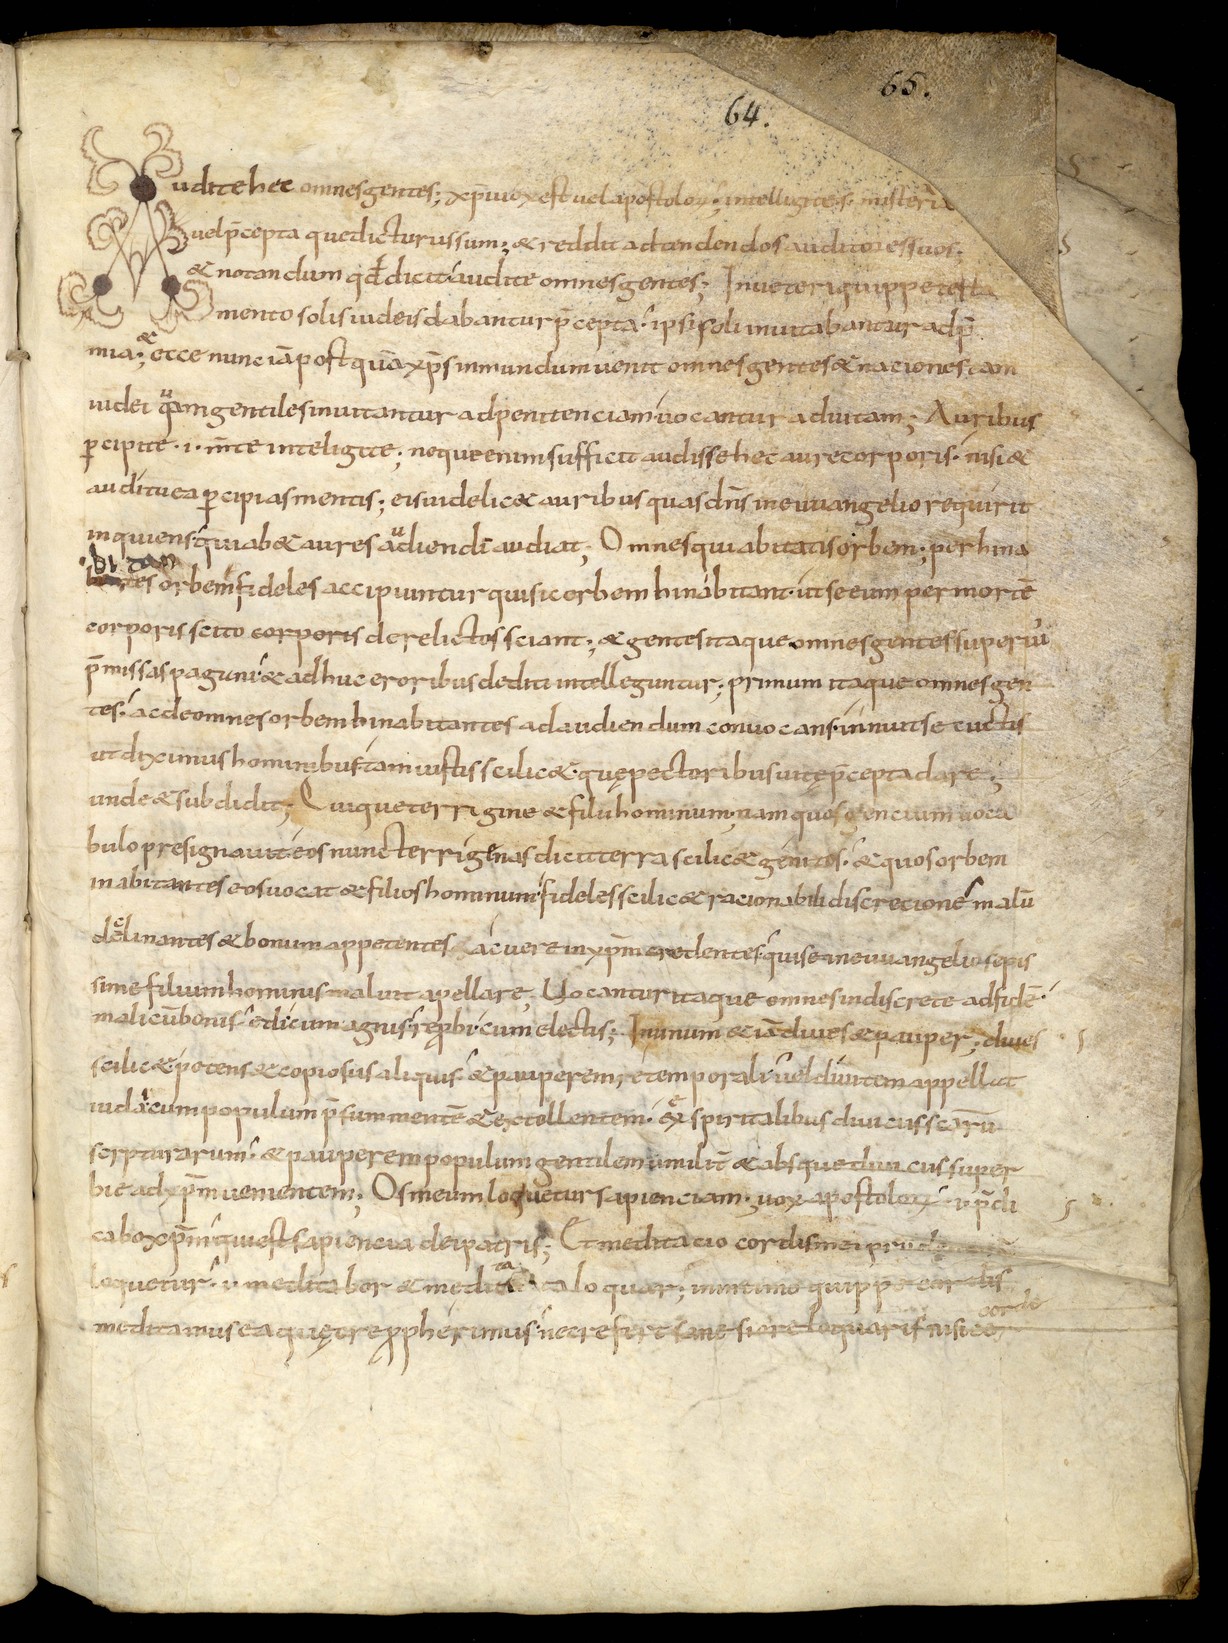 65.
64.
Audite hec omnes gentes; xp̄i uox est uel apostolor͛; intelligite·s· misteria
uel p̄cepta que dicturus sum; & reddit adtendendos auditores suos;
& notandum qđ dicit audite omnes gentes; In ueteri quippe testa
mento solis iudeis dabantur p̄cepta; ipsi soli inuitabantur ad p̄
mia; & ecce nunc iā postquā xp̄s in mundum uenit omnes gentes & naciones tam
iudei quam gentiles inuitantur ad penitenciam uocantur ad uitam; Auribus
p̱cipite ·i· m̄te inteligite; neque enim sufficit audisse hec aure corporis nisi &
auditu ea p̱cipias mentis; eis uidelic& auribus quas dn̄s in euuangelio requirit
inquiens qui ab& aures audiendi audiat; Omnes qui abitatis orbem; per hina
bitantes orbem fideles accipiuntur qui sic orbem hinabitant ut se eum per mortē
corporis scito corporis derelictos sciant; & gentes itaque omnes gentes superiū
p̄missas pagani & adhuc eroribus dediti intelleguntur; primum itaque omnes gen
tes ac de omnes orbem hinabitantes ad audiendum conuocans innuit se cuctis
ut diximus hominibus tam iustis scilic& quę pectoribus uitę p̄cepta dare;
unde & subdidit; Quique terrigine & filii hominum; nam quos gencium uoca
bulo presignauit eos nunc terrigenas dicit terra scilic& genitos & quos orbem
inabitantes eos uocat & filios hominum fideles scilic& racionabili discrecione malū
declinantes & bonum appetentes ac uere in xp̄m credentes qui se in euuangelio sepis
sime filium hominis maluit apellare, Uocantur itaque omnes indiscrete ad fidē
mali cū bonis edi cum agnis rep̱bi cum electis; In unum & iā diues & pauper; diues
scilic& potens & copiosus aliquis & pauperem re temporali uel diuitem appellat
iudaicum populum p̄summentē & extollentem ex spiritalibus diuiciis scārū
scrpturarum & pauperem populum gentilem umilit̄ & absque diuiciis super
bie ad xp̄m uenientem; Os meum loquetur sapienciam uox apostolor͛ ·i· p̄di
cabo xp̄m qui est sapiencia dei patris; Et meditacio cordis mei prudenciā
loquetur ·i· meditabor & medita ta loquar; in intimo quippe cordis
meditamus ea quę ore p̱pherimus nec refert sane si ore loquaris nisi & corde